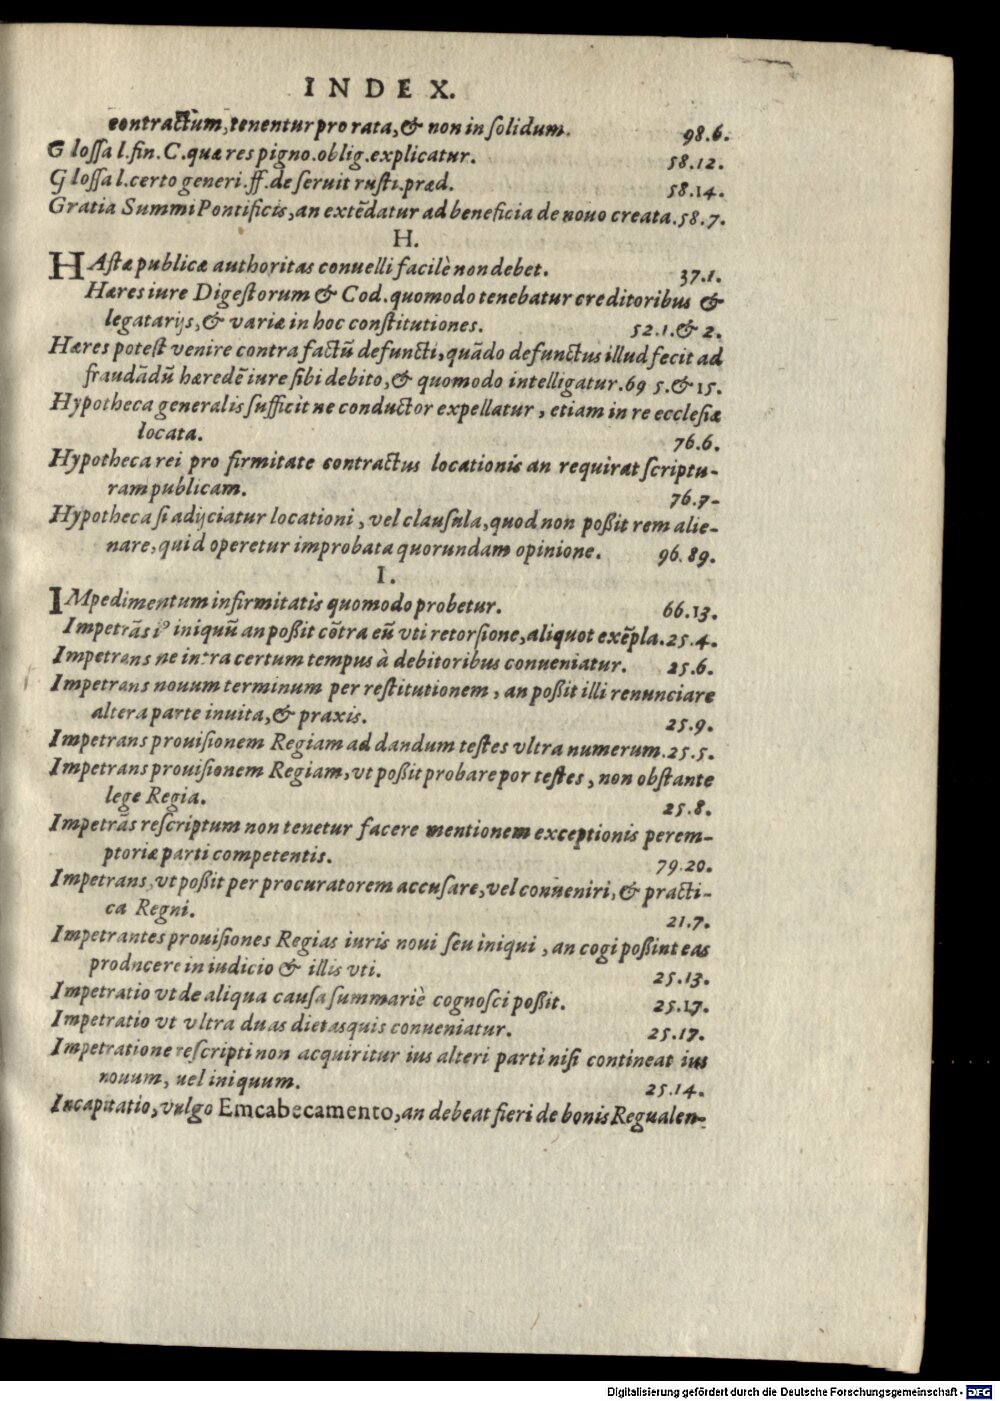 INDEX.
contractum, tenentur pro rata, & non in ſolidum. 98.6.
Gloſſa l.fin. C. quæ res pigno. oblig. explicatur. 58.12.
Gloſſa l. certo generi. ff. de ſeruit ruſti. præd. 58.14.
Gratia Summi Pontificis, an extẽdatur ad beneficia de nouo creata. 58.7.
H.
HAſtæ publicæ authoritas conuelli facilè non debet. 37.1.
Hæres iure Digeſtorum & Cod. quomodo tenebatur creditoribus &
legatarijs, & variæ in hoc conſtitutiones. 52.1.& 2.
Hæres poteſt venire contra factũ defuncti, quãdo defunctus illud fecit ad
fraudãdũ hæredẽ iure ſibi debito, & quomodo intelligatur. 69 5.& 15.
Hypotheca generalis ſufficit ne conductor expellatur, etiam in re eccleſiæ
locata. 76.6.
Hypotheca rei pro firmitate contractus locationis an requirat ſcriptu-
ram publicam. 76.7-
Hypotheca ſi adijciatur locationi, vel clauſula, quod non poßit rem alie-
nare, quid operetur improbata quorundam opinione. 96.89.
I.
IMpedimentum infirmitatis quomodo probetur. 66.13.
Impetrãs iꝰ iniquũ an poßit cõtra eũ vti retorſione, aliquot exẽpla. 25.4.
Impetrans ne intra certum tempus à debitoribus conueniatur. 25.6.
Impetrans nouum terminum per reſtitutionem, an poßit illi renunciare
altera parte inuita, & praxis. 25.9.
Impetrans prouiſionem Regiam ad dandum teſtes vltra numerum. 25.5.
Impetrans prouiſionem Regiam, vt poßit probare por teſtes, non obſtante
lege Regia. 25.8.
Impetrãs reſcriptum non tenetur facere mentionem exceptionis perem-
ptoriæ parti competentis. 79.20.
Impetrans, vt poßit per procuratorem accuſare, vel conueniri, & practi-
ca Regni. 21.7.
Impetrantes prouiſiones Regias iuris noui ſeu iniqui, an cogi poßint eas
prodncere in iudicio & illis vti. 25.13.
Impetratio vt de aliqua cauſa ſummariè cognoſci poßit. 25.17.
Impetratio vt vltra duas dietas quis conueniatur. 25.17.
Impetratione reſcripti non acquiritur ius alteri parti niſi contineat ius
nouum, uel iniquum. 25.14.
Incapitatio, vulgo Emcabecamento, an debeat fieri de bonis Regualen-
Digitalisierung gefördert durch die Deutsche Forschungsgemeinschaft - DFG